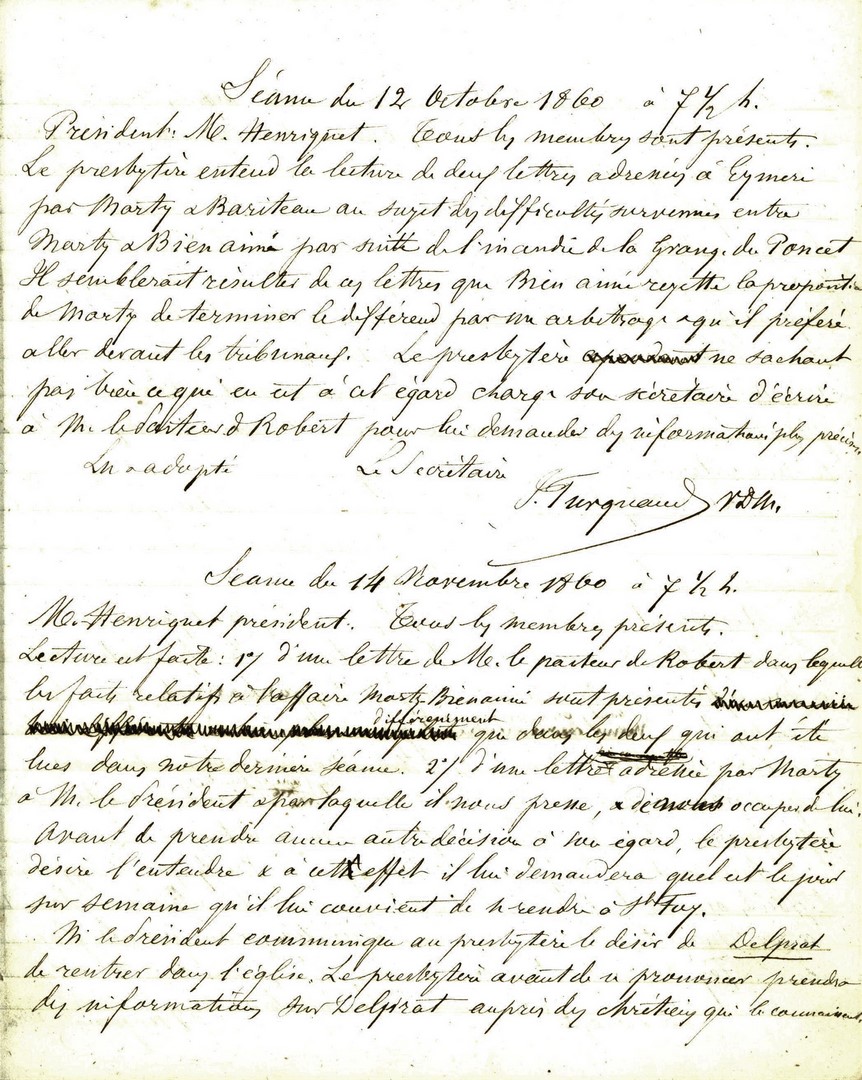 Séance du 12 Octobre 1860 à 7 1/2 h.
Président: M. Henriquet. Tous les membres sont présents.
Le presbytère entend la lecture de deux lettres adressées à Eymeri
par Marty & Bariteau au sujet des difficultés survenues entre
Marty & Bienaimé par suite de l'incendie de la Grange du Poncet
Il semblerait résulter de ces lettres que Bien aimé rejette la proposition
de Marty de terminer le différend par un arbitrage & qu'il préfère
aller devant les tribunaux. Le presbytère ne sachant
pas bien ce qui en est à cet égard charge son secrétaire d'écrire
à M. le Pasteur de Robert pour lui demander des informations plus précises
Lu & adopté Le Secrétaire
J. Turquand VDM.
Séance du 14 Novembre 1860 à 7 1/2 h.
M. Henriquet président. Tous les membres présents.
Lecture est faite: 1°/ d'une lettre de M. le pasteur de Robert dans laquelle
les faits relatifs à l'affaire Marty Bienaimé sont présentés
différemment que dans les deux qui ont été
lues dans notre dernière séance. 2°/ d'une lettre adressée par Marty
à M. le Président & par laquelle il nous presse, de nous occuper de lui.
Avant de prendre aucune autre décision à son égard, le presbytère
désire l'entendre & à cet effet il lui demandera quel est le jour
sur semaine qu'il lui convient de se rendre à Ste Foy.
M. le Président communique au presbytère le désir de Delprat
de rentrer dans l'église. Le presbytère avant de se prononcer prendra
des informations sur Delprat auprès des chrétiens qui le connaissent.